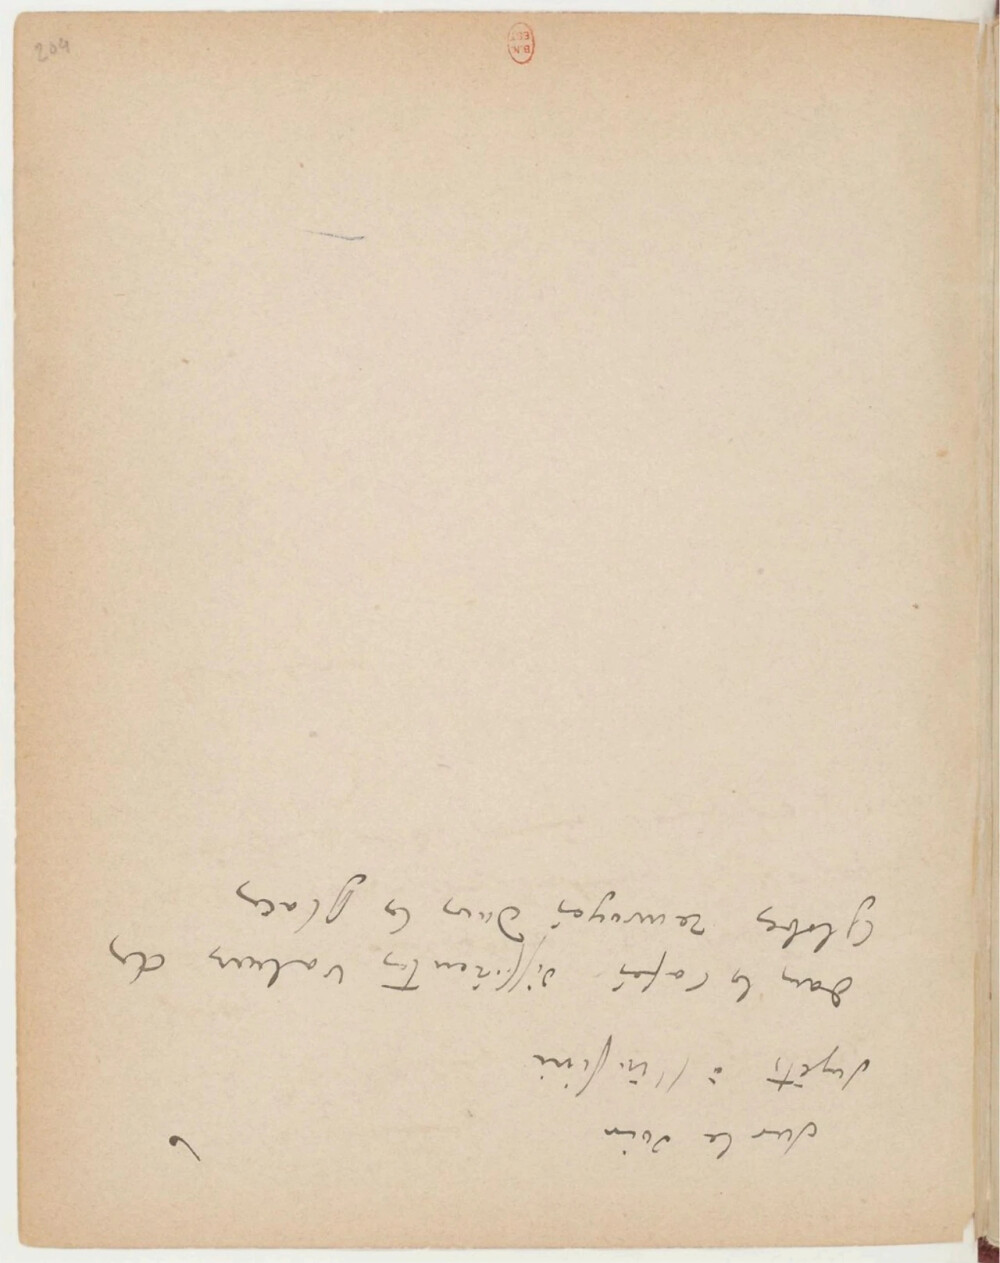 204
B.N.
EST
sur le soir
sujets à l'infini
dans les cafés différentes valeurs des
globes renvoyés dans les glaces